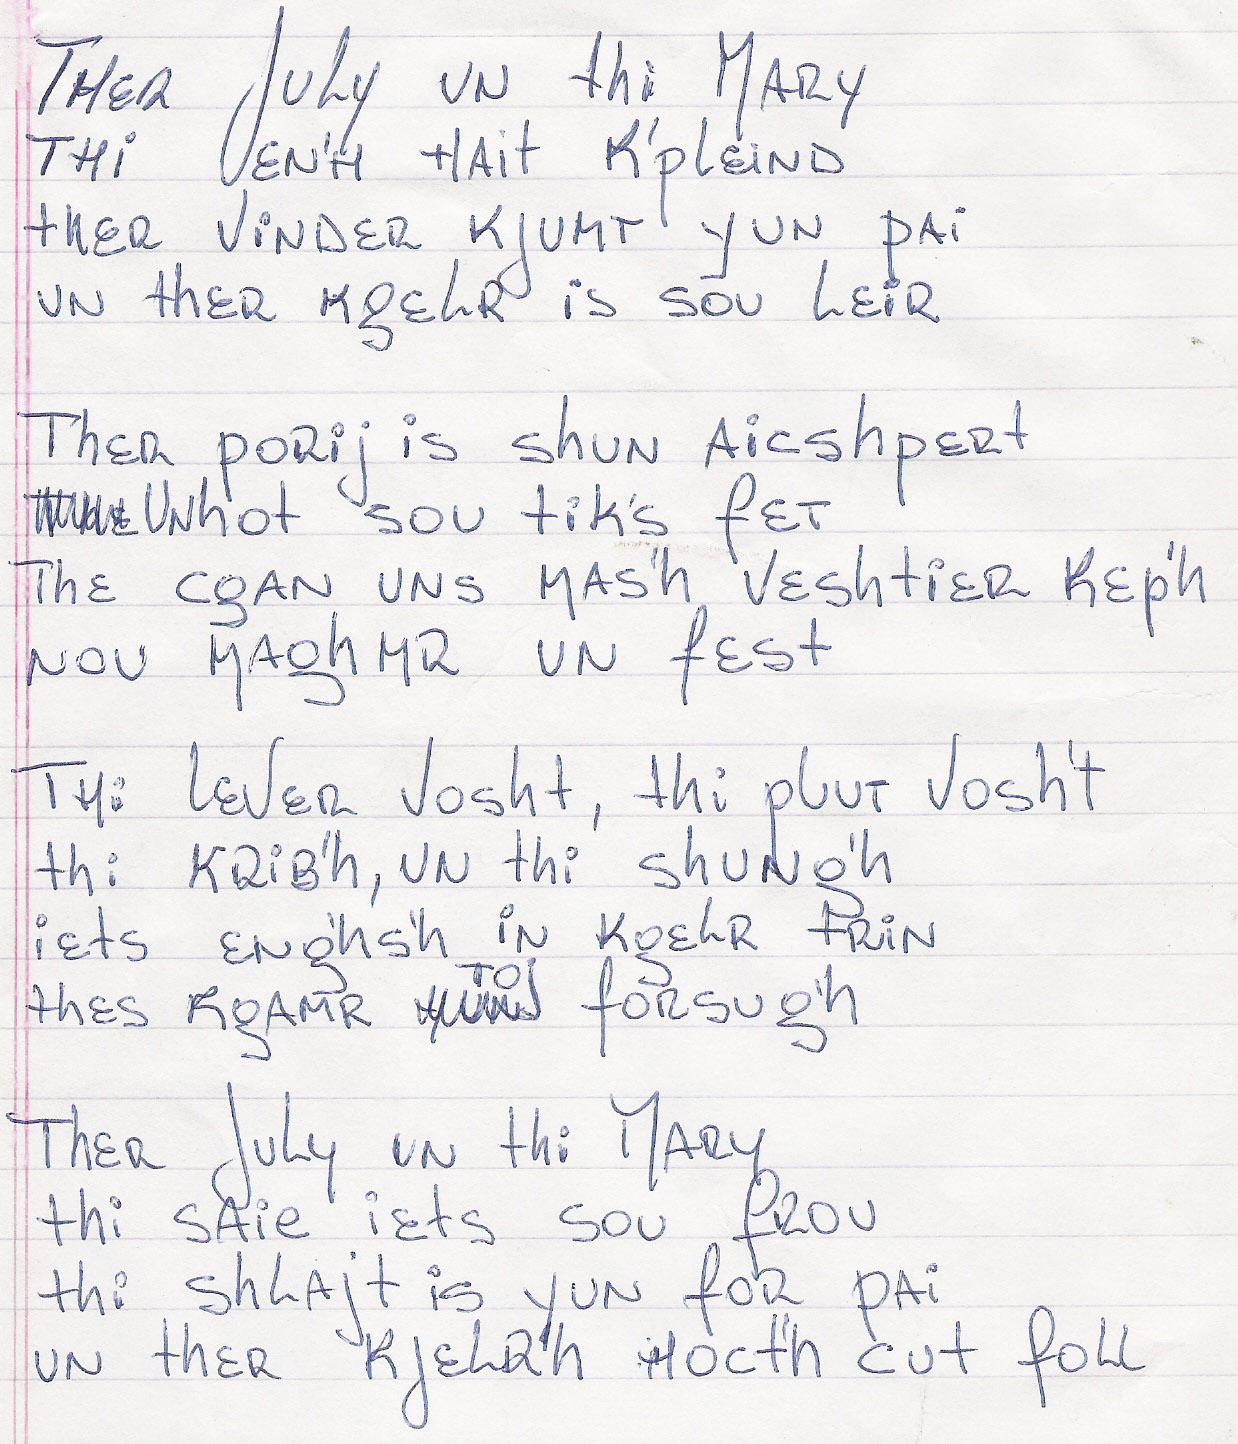 Ther July un thi Mary
Thi ven'h hait k'pleind
ther vinder kjumt yun pai
un ther kgelr is sou leir
Ther porij is shun aicshpert
Unhot sou tik's fet
The cgan uns mas'h veshtier kep'h
nou maghmr un fest
Thi lever vosht, thi pluut vosh't
thi krib'h, un thi shung'h
iets eng'hs'h in kgelr trin
thes kgamr toj forsug'h
Ther July un thi Mary
thi saie iets sou frou
thi shlajt is yun for pai
un ther kjelr'h hoct'h cut foll